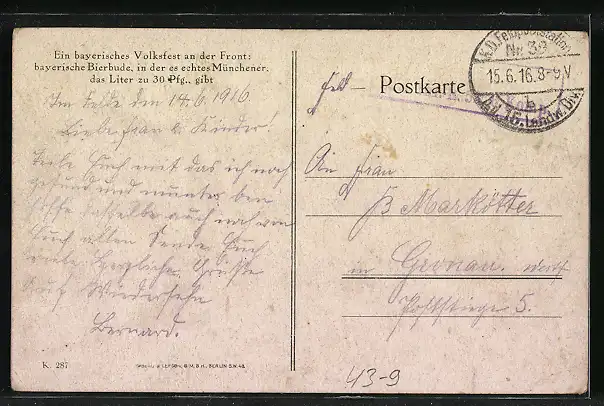 Ein bayerisches Volksfest an der Front:
bayerische Bierbude, in der es echtes Münchener,
das Liter zu 30 Pfg., gibt
Im Felde den 14/6. 1916.
Liebe Frau u. Kinder!
Teile Euch mit das ich noch
gesund und munter bin
hoffe dasselbe auch noch von
Euch allen. Sende Euch
viele herzliche Grüße
Auf Wiedersehn
Bernard.
K. 287
G. M. B. H., BERLIN S.W. 48
Feld–Postkarte
K.D. Feldpoststation
Nr. 32
15.6.16. 8-9 V
b
16. Landw. Div.
An Frau
B Markötter
in Gronau. Westf
Poststiege 5.
43-9